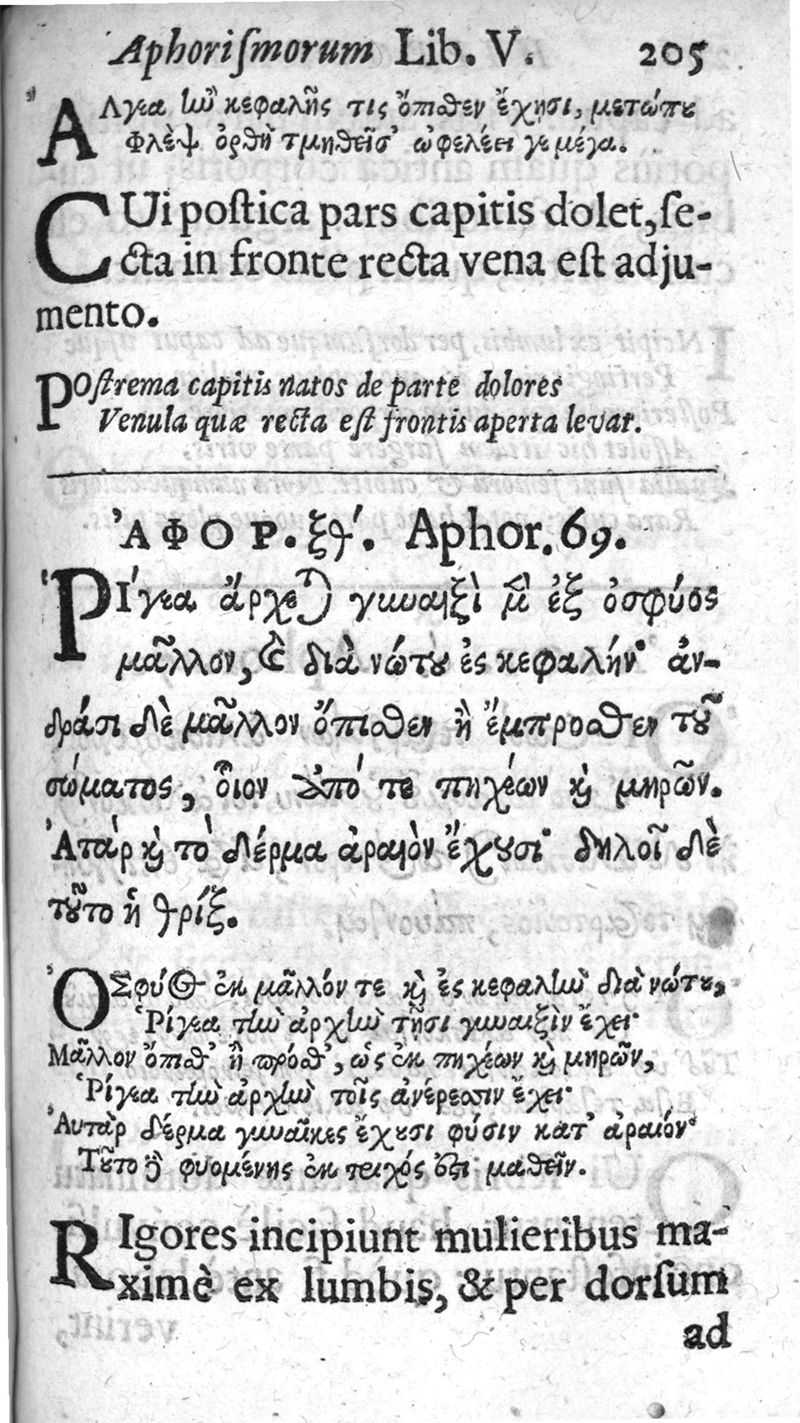 Aphoriſmorum Lib. V. 205
Ἄλγεα ἢν κεφαλῆς τις ὄπιθεν ἔχῃσι, μετώπου
Φλὲψ ὀρθὴ τμηθεῖσ' ὠφελέει γε μέγα.
CUi poſtica pars capitis dolet, ſe-
cta in fronte recta vena eſt adju-
mento.
POſtrema capitis natos de parte dolores
Venula quæ recta eſt frontis aperta levat.
ἈΦΟΡ. ξθ'. Aphor. 69.
ῬΊγεα ἄρχεται γυναιξὶ μὲν ἐξ ὀσφύος
μᾶλλον, καὶ διὰ νώτου ἐς κεφαλήν· ἀν-
δράσι δὲ μᾶλλον ὄπισθεν ἢ ἔμπροσθεν τοῦ
σώματος, οἷον ἀπό τε πηχέων καὶ μηρῶν.
Ἀτὰρ καὶ τὸ δέρμα ἀραιὸν ἔχουσι· δηλοῖ δὲ
τοῦτο ἡ θρίξ.
ὈΣφύος ἐκ μᾶλλόν τε καὶ ἐς κεφαλὴν διὰ νώτου,
Ῥίγεα τὴν ἀρχὴν τῇσι γυναιξὶν ἔχει·
Μᾶλλον ὄπιθ' ἢ πρόσθ', ὡς ἐκ πηχέων καὶ μηρῶν,
Ῥίγεα τὴν ἀρχὴν τοῖς ἀνέρεσσιν ἔχει·
Αὐτὰρ δέρμα γυναῖκες ἔχουσι φύσιν κατ' ἀραιόν·
Τοῦτο δὲ φυομένης ἐκ τριχός ἐστι μαθεῖν.
RIgores incipiunt mulieribus ma-
ximè ex lumbis, & per dorſum
ad